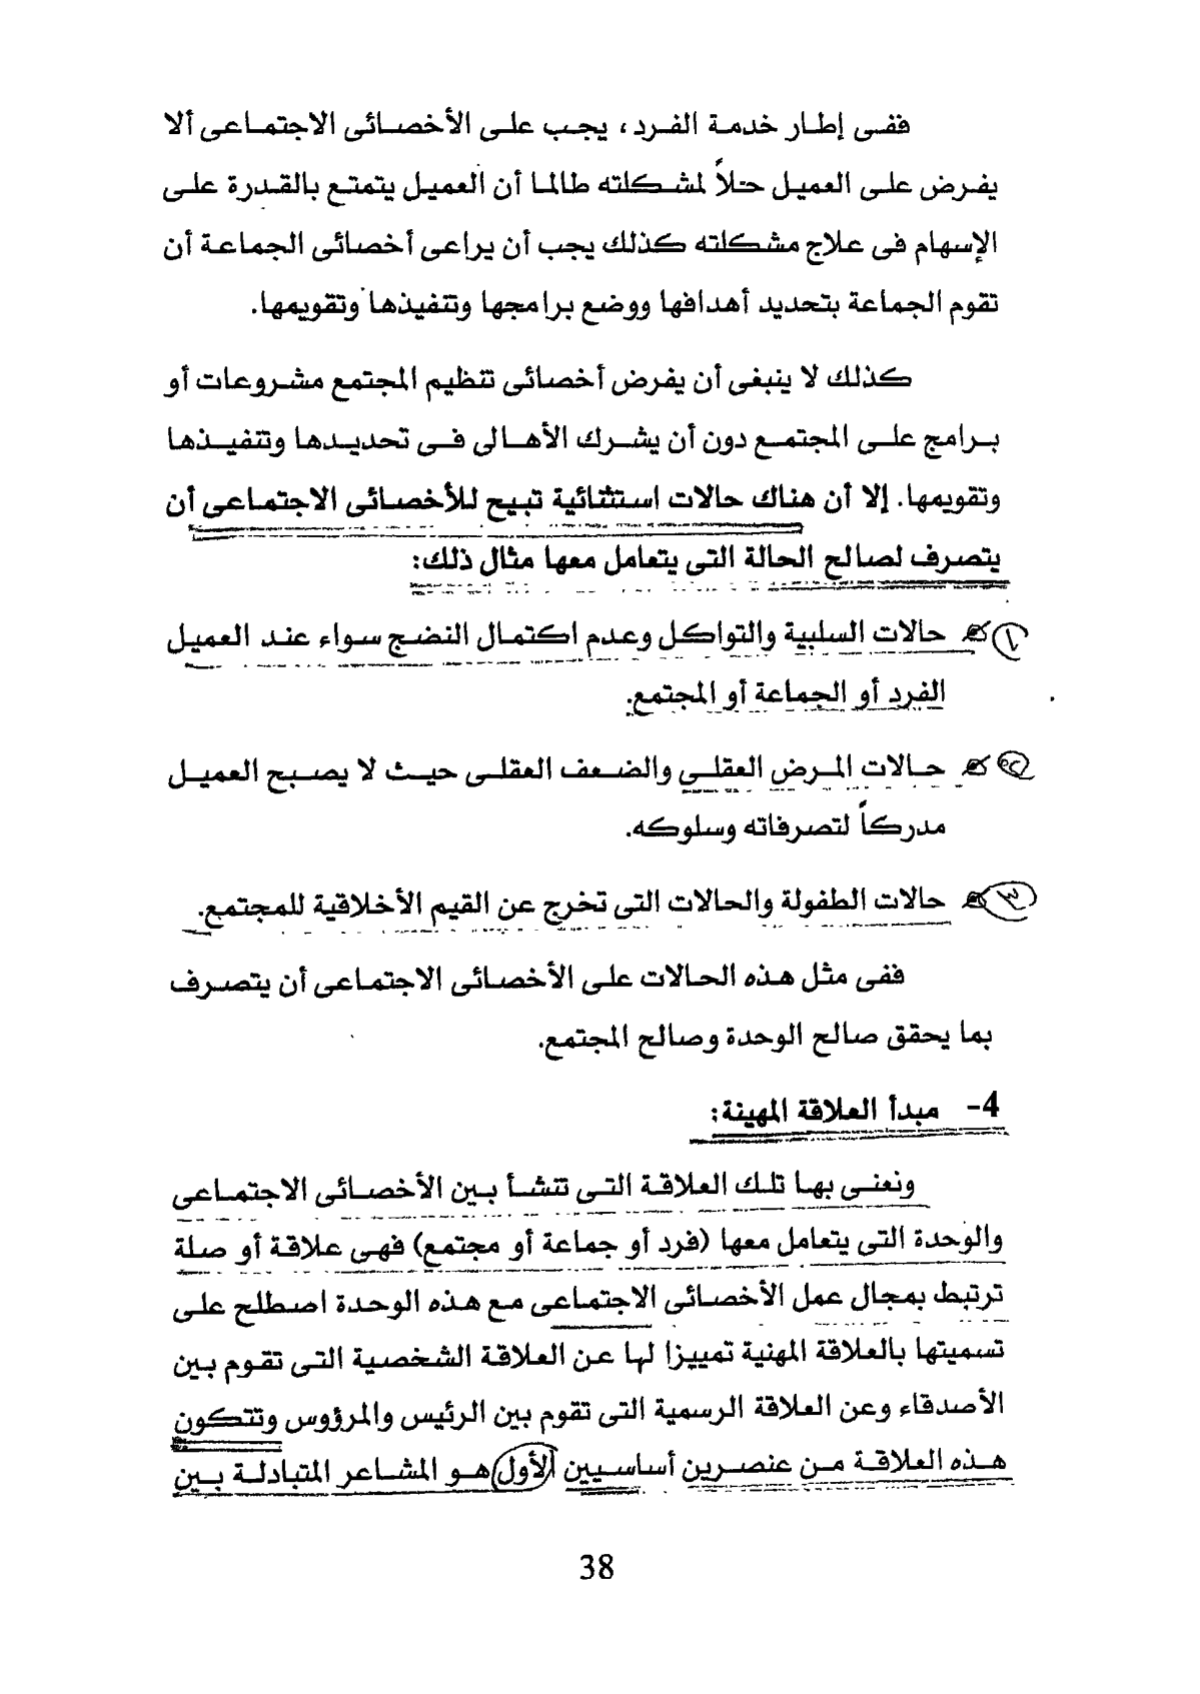 ففى إطار خدمة الفرد، يجب على الأخصائى الاجتماعى ألا
يفرض على العميل حلاً لمشكلته طالما أن العميل يتمتع بالقدرة على
الإسهام فى علاج مشكلته كذلك يجب أن يراعى أخصائى الجماعة أن
تقوم الجماعة بتحديد أهدافها ووضع برامجها وتنفيذها وتقويمها.
كذلك لا ينبغى أن يفرض أخصائى تنظيم المجتمع مشروعات أو
برامج على المجتمع دون أن يشرك الأهالى فى تحديدها وتنفيذها
وتقويمها. إلا أن هناك حالات استثنائية تبيح للأخصائى الاجتماعى أن
يتصرف لصالح الحالة التى يتعامل معها مثال ذلك:
١ ✍ حالات السلبية والتواكل وعدم اكتمال النضج سواء عند العميل
الفرد أو الجماعة أو المجتمع.
٢ ✍ حالات المرض العقلى والضعف العقلى حيث لا يصبح العميل
مدركاً لتصرفاته وسلوكه.
٣ ✍ حالات الطفولة والحالات التى تخرج عن القيم الأخلاقية للمجتمع.
ففى مثل هذه الحالات على الأخصائى الاجتماعى أن يتصرف
بما يحقق صالح الوحدة وصالح المجتمع.
4- مبدأ العلاقة المهينة:
ونعنى بها تلك العلاقة التى تنشأ بين الأخصائى الاجتماعى
والوحدة التى يتعامل معها (فرد أو جماعة أو مجتمع) فهى علاقة أو صلة
ترتبط بمجال عمل الأخصائى الاجتماعى مع هذه الوحدة اصطلح على
تسميتها بالعلاقة المهنية تمييزا لها عن العلاقة الشخصية التى تقوم بين
الأصدقاء وعن العلاقة الرسمية التى تقوم بين الرئيس والمرؤوس وتتكون
هذه العلاقة من عنصرين أساسيين الأول هو المشاعر المتبادلة بين
38